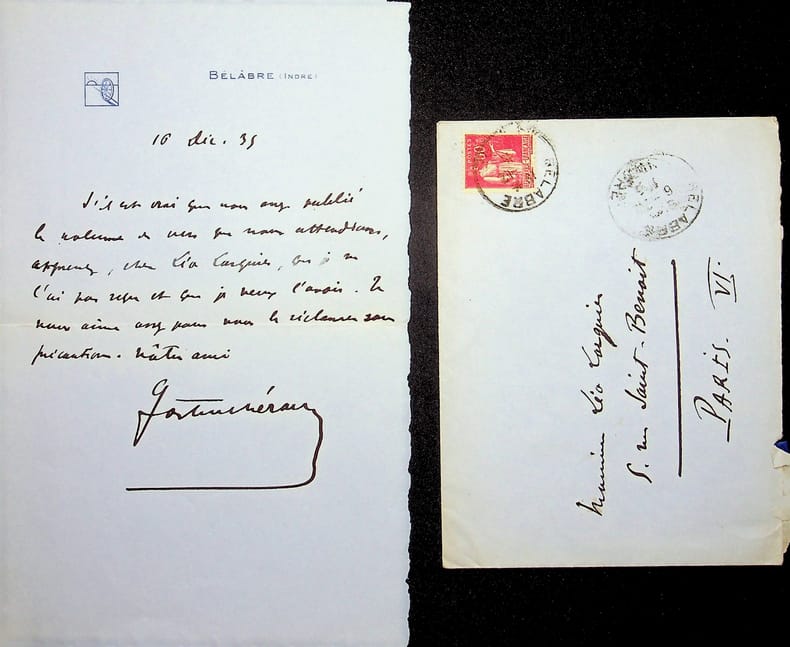 BÉLÂBRE (INDRE)
16 Déc. 35
S'il est vrai que vous ayez publié
le volume de vers que nous attendions,
apprenez, cher Léo Larguier, que je ne
l'ai pas reçu et que je veux l'avoir. Je
vous aime assez pour vous le réclamer sans
précautions. Vôtre ami
Gaston Chérau
POSTES
BELABRE
BELABRE
Monsieur Léo Larguier
5. rue Saint-Benoit
PARIS. VI.